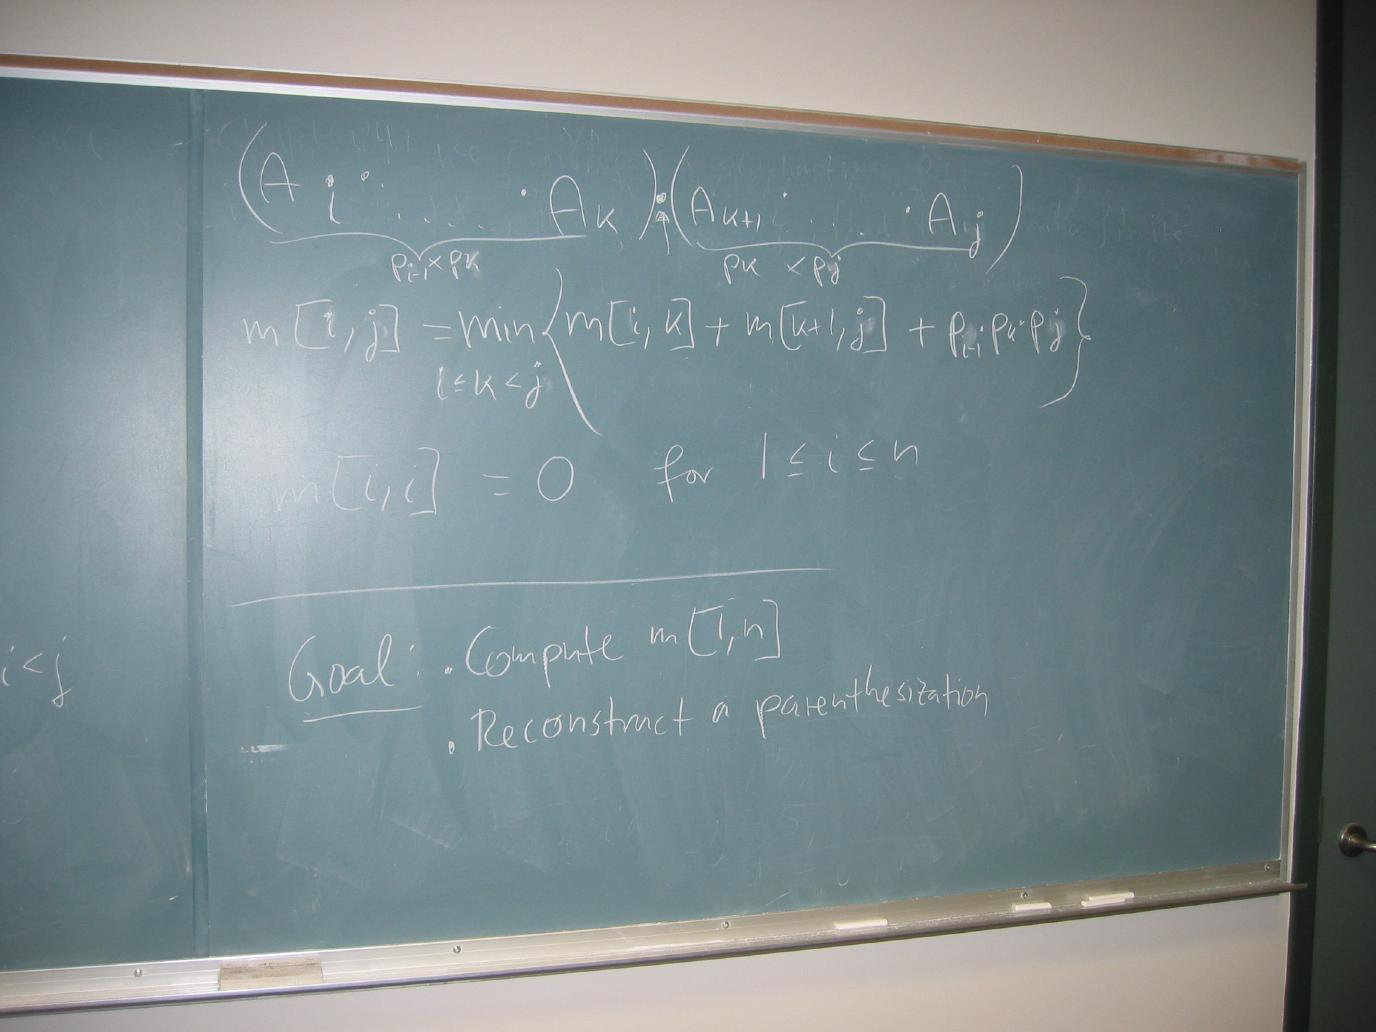 (A i · . . . . . · A k ) · ( A k+1 · . . . . . · A j )
p i-1 × p k   p k × p j
m [i, j] = min { m[i, k] + m[k+1, j] + p i-1 · p k · p j }
1 ≤ k < j
m[i,i] = 0 for 1 ≤ i ≤ n
i < j
Goal: . Compute m[1,n]
. Reconstruct a parenthesization